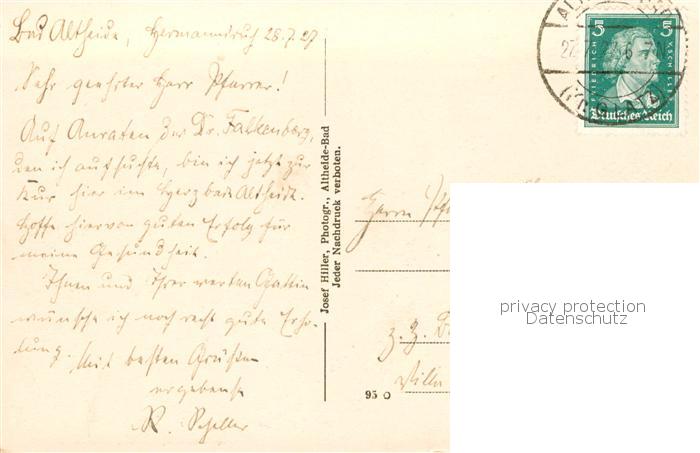 Bad Altheide, Hermannsruh 28.7.27
Sehr geehrter Herr Pfarrer!
Auf Anraten des Dr. Falkenberg,
den ich aufsuchte, bin ich jetzt zur
Kur hier im Herzbad Altheide.
Hoffe hiervon guten Erfolg für
meine Gesundheit.
Ihnen und Ihrer werten Gattin
wünsche ich noch recht gute Erho-
lung. Mit besten Grüßen
ergebenst
R. Scheller
Josef Hiller, Photogr., Altheide-Bad
Jeder Nachdruck verboten.
5 5
FRIEDRICH v. SCHILLER
Deutsches Reich
(Kr. GLATZ)
Herrn
z. Z.
Villa
95 O
privacy protection
Datenschutz